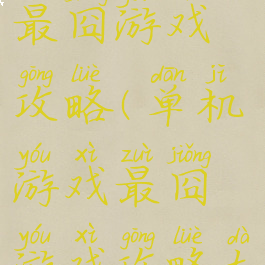 最囧游戏
gōng lüè dān jī
攻略(单机
yóu xì zuì jiǒng
游戏最囧
yóu xì gōng lüè dà
游戏攻略大